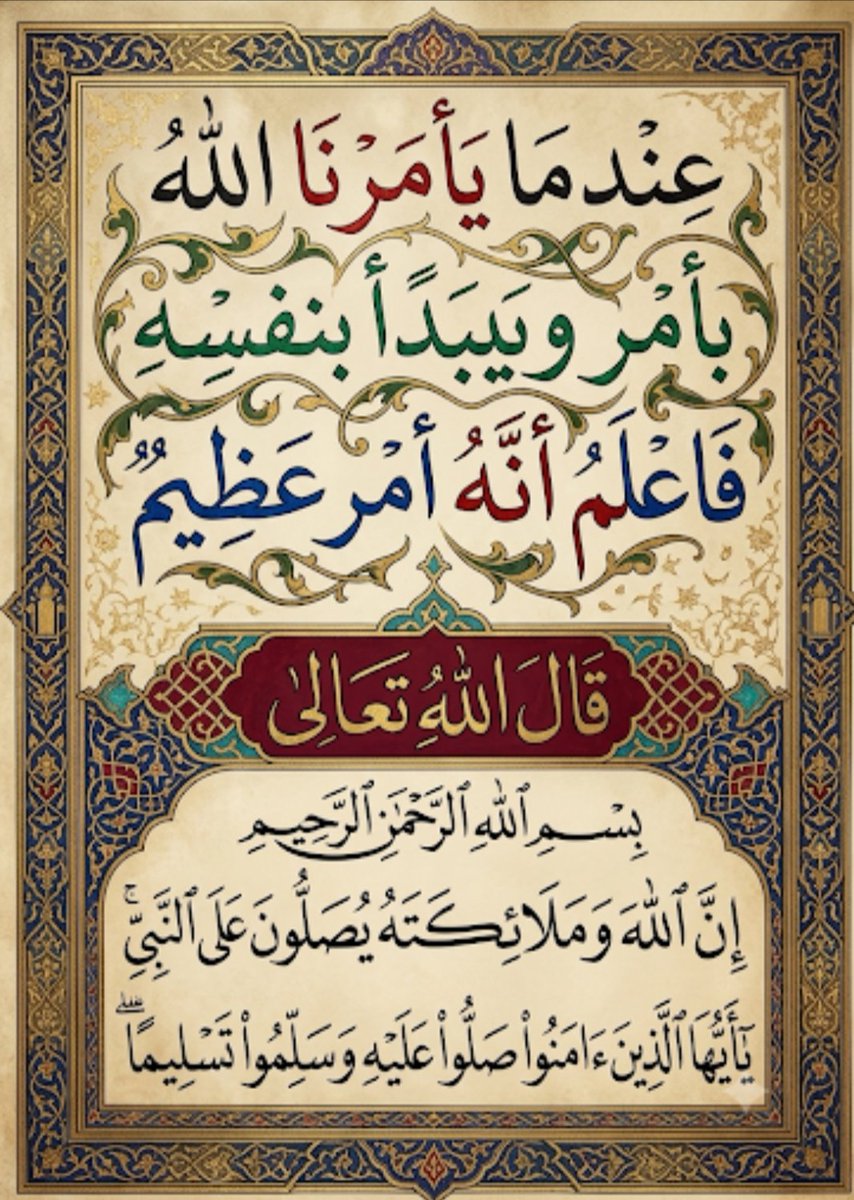 عِنْدمَا يَأمَرْنَا اللهُ
بأمْر ويَيبَدًأ بنفسِْهِ
فَاعْلَمُ أنَّهُ أمْر عَظِيمٌ
قَالَ اللهُِ تَعَالىٰ
بِسْمِ ٱللهِ ٱلرَّحْمَٰنِ ٱلرَّحِيمِ
إِنَّ ٱللهَ وَمَلَائِكَتَهُ يُصَلُّونَ عَلَى ٱلنَّبِيِّۚ
يَٰٓأَيُّهَا ٱلَّذِينَ ءَامَنُوا۟ صَلُّوا۟ عَلَيْهِ وَسَلِّمُوا۟ تَسْلِيمًا